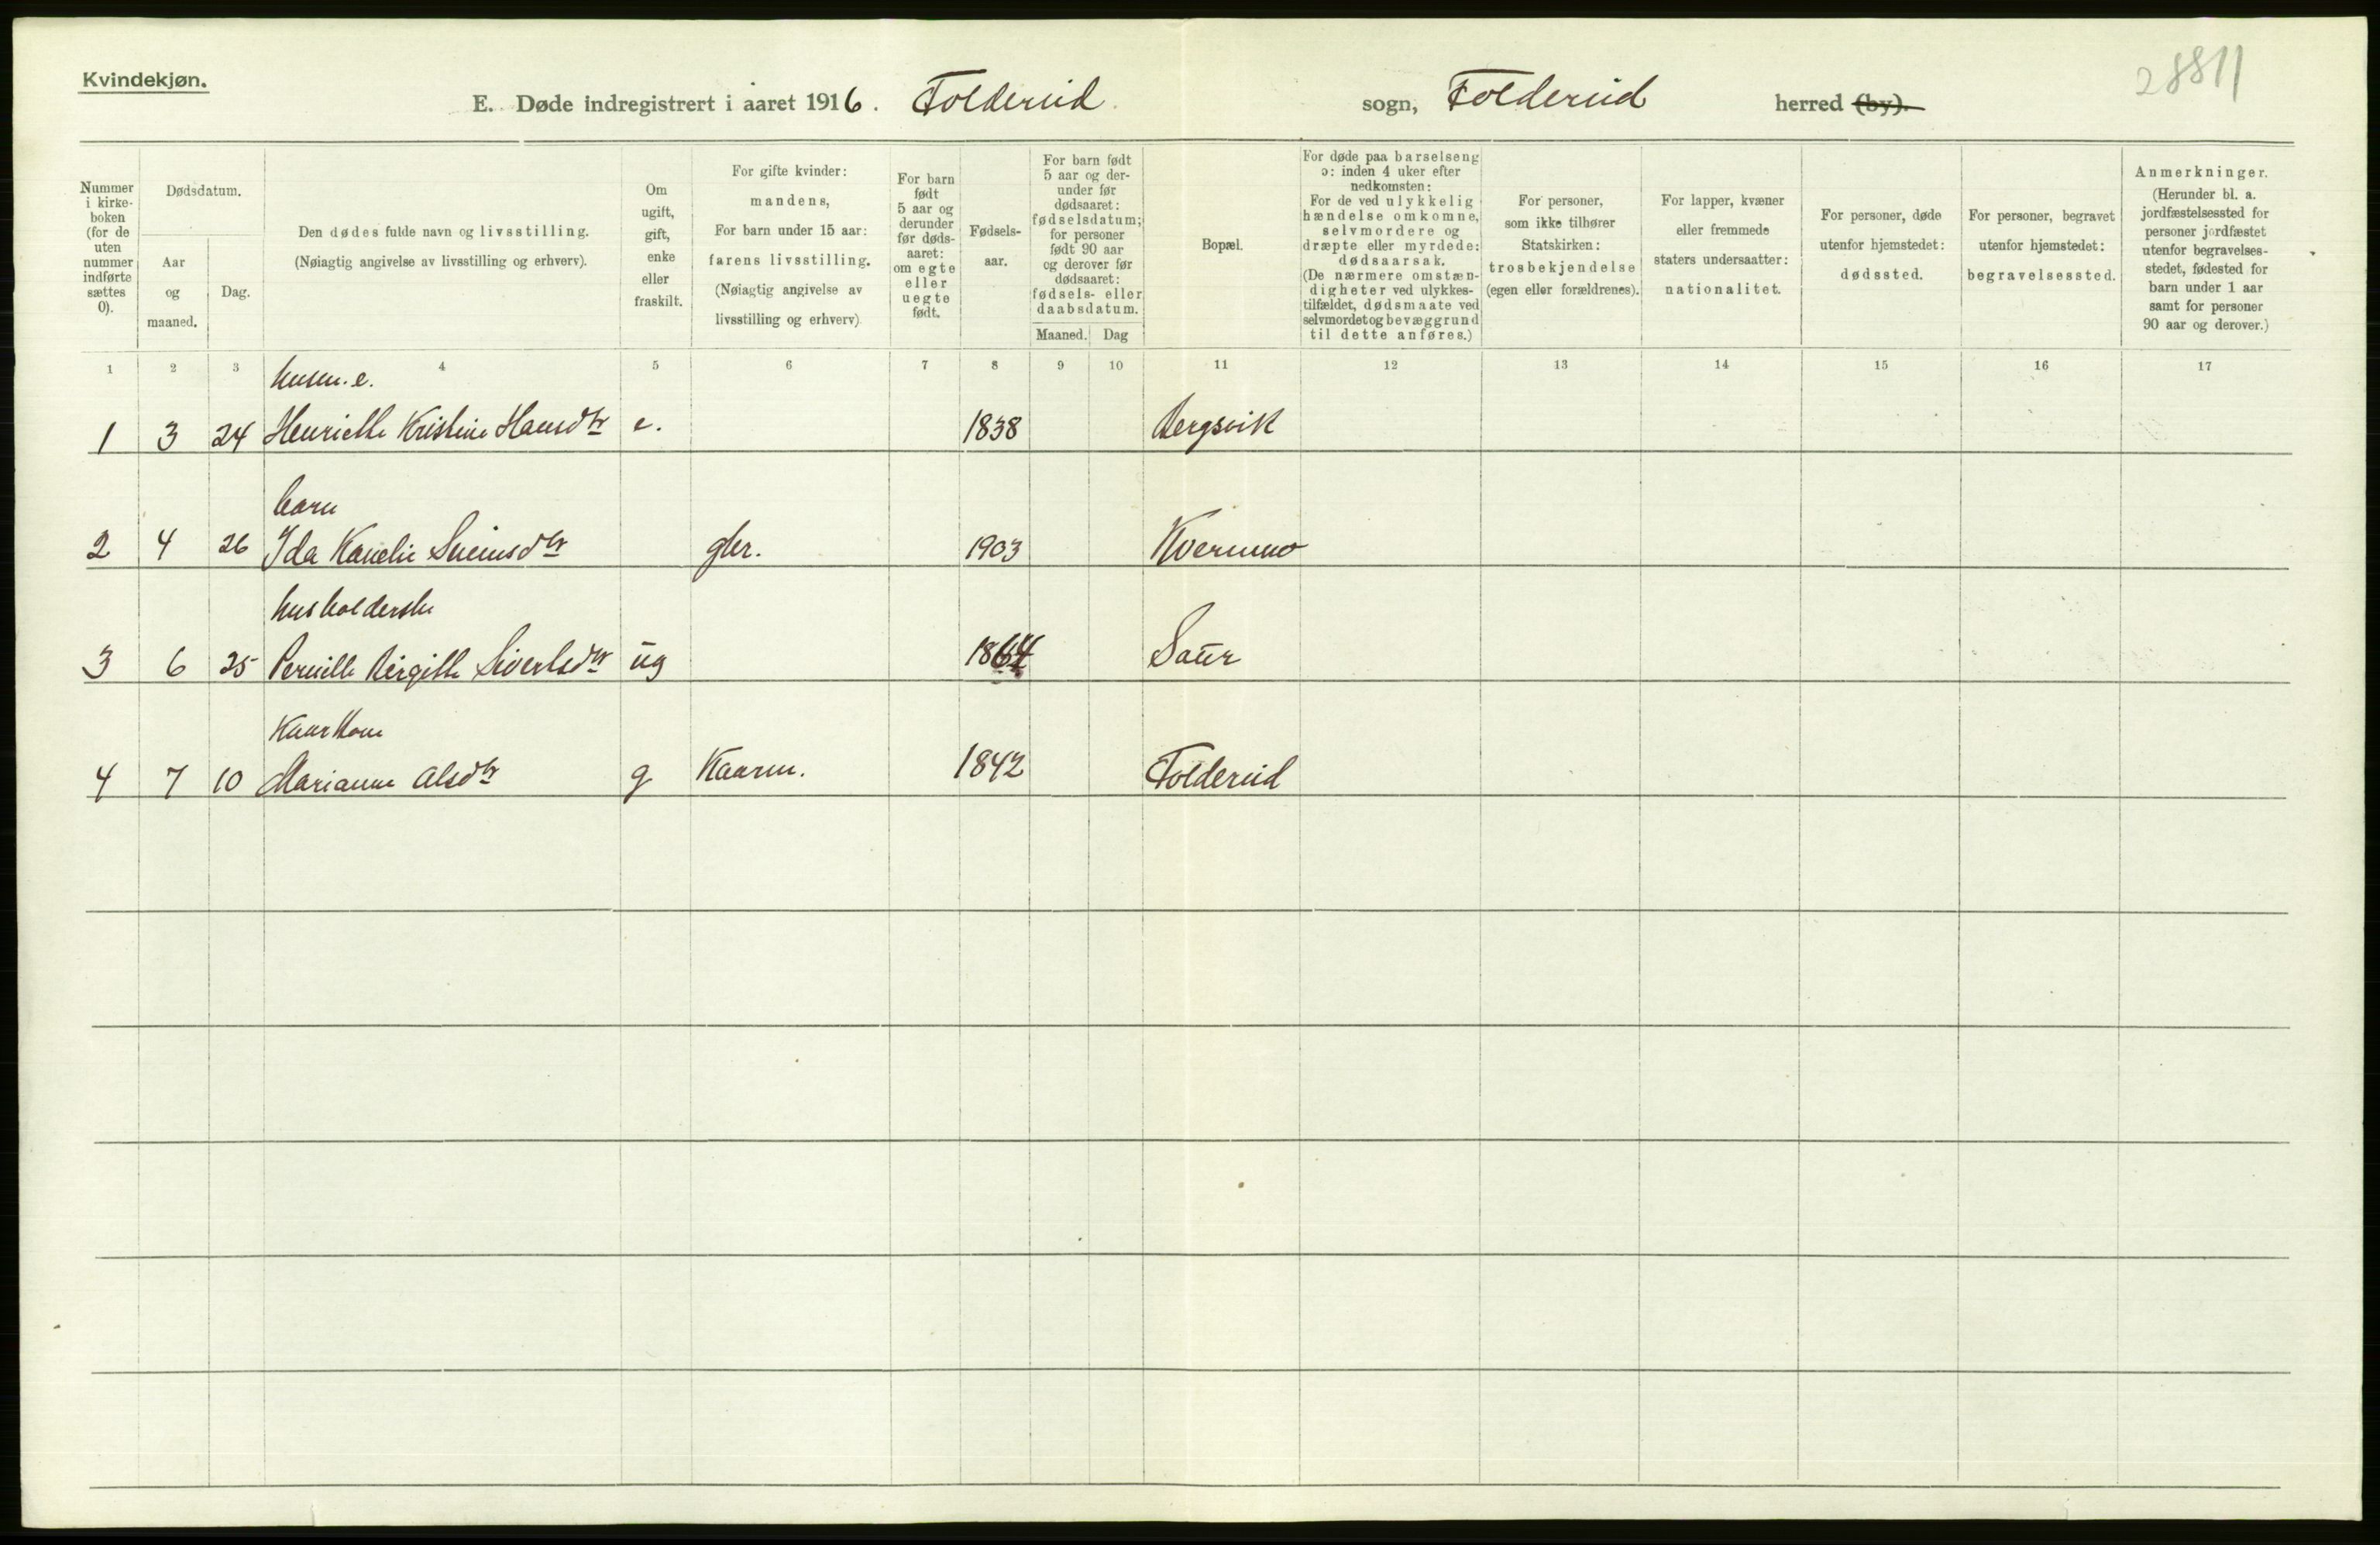 Kvindekjøn.
28811
E. Døde indregistrert i aaret 1916. Foldereid sogn, Foldereid herred (by).
Nummer i kirke-boken (for de uten nummer indførte sættes 0).
Dødsdatum.
Aar og maaned.
Dag.
Den dødes fulde navn og livsstilling.
(Nøiagtig angivelse av livsstilling og erhverv).
Om ugift, gift, enke eller fraskilt.
For gifte kvinder: mandens,
For barn under 15 aar: farens livsstilling.
(Nøiagtig angivelse av livsstilling og erhverv)
For barn født 5 aar og derunder før døds-aaret: om egte eller uegte født.
Fødsels-aar.
For barn født 5 aar og der-under før dødsaaret: fødselsdatum; for personer født 90 aar og derover før dødsaaret: fødsels- eller daabsdatum.
Maaned. Dag
Bopæl.
For døde paa barselseng ɔ: inden 4 uker efter nedkomsten: For de ved ulykkelig hændelse omkomne, selvmordere og dræpte eller myrdede: dødsaarsak. (De nærmere omstæn-digheter ved ulykkes-tilfældet, dødsmaate ved selvmordet og bevæggrund til dette anføres.)
For personer, som ikke tilhører Statskirken: trosbekjendelse (egen eller forældrenes).
For lapper, kvæner eller fremmede staters undersaatter: nationalitet.
For personer, døde utenfor hjemstedet: dødssted.
For personer, begravet utenfor hjemstedet: begravelsessted.
Anmerkninger.
(Herunder bl. a. jordfæstelsessted for personer jordfæstet utenfor begravelses-stedet, fødested for barn under 1 aar samt for personer 90 aar og derover.)
1 2 3 4 5 6 7 8 9 10 11 12 13 14 15 16 17
husm. e.
1 3 24 Henriette Kristine Hansdtr e. 1838 Bergsvik
barn
2 4 26 Ida Sveinsdtr gbr. 1903 Kvermo
husholderske
3 6 25 Pernille Birgitte Sivertsdtr ug 1864 Saur
Kaarkone
4 7 10 Marianne Olsdtr g Kaarm. 1842 Foldereid